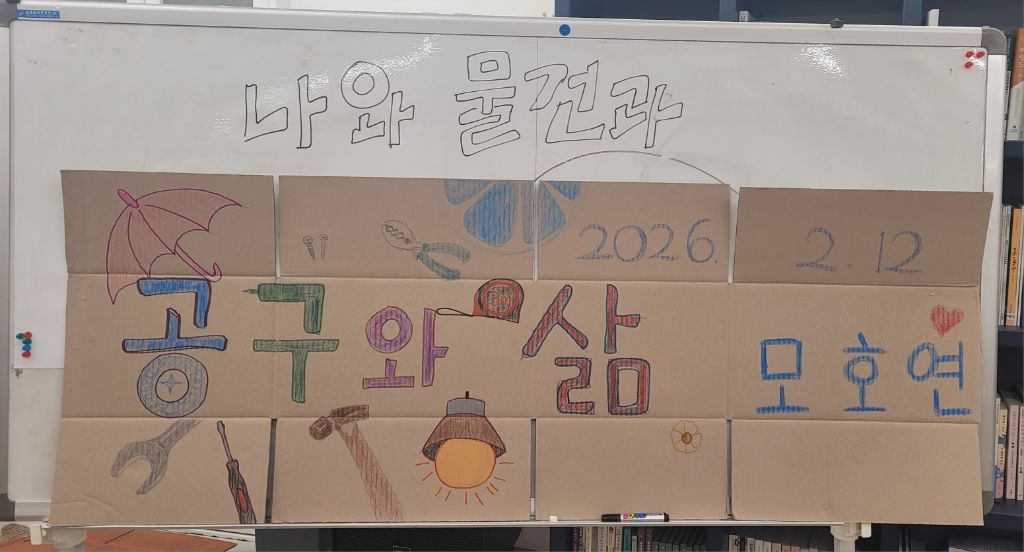 나와 물건과
2026. 2. 12
공구와 삶
모호연